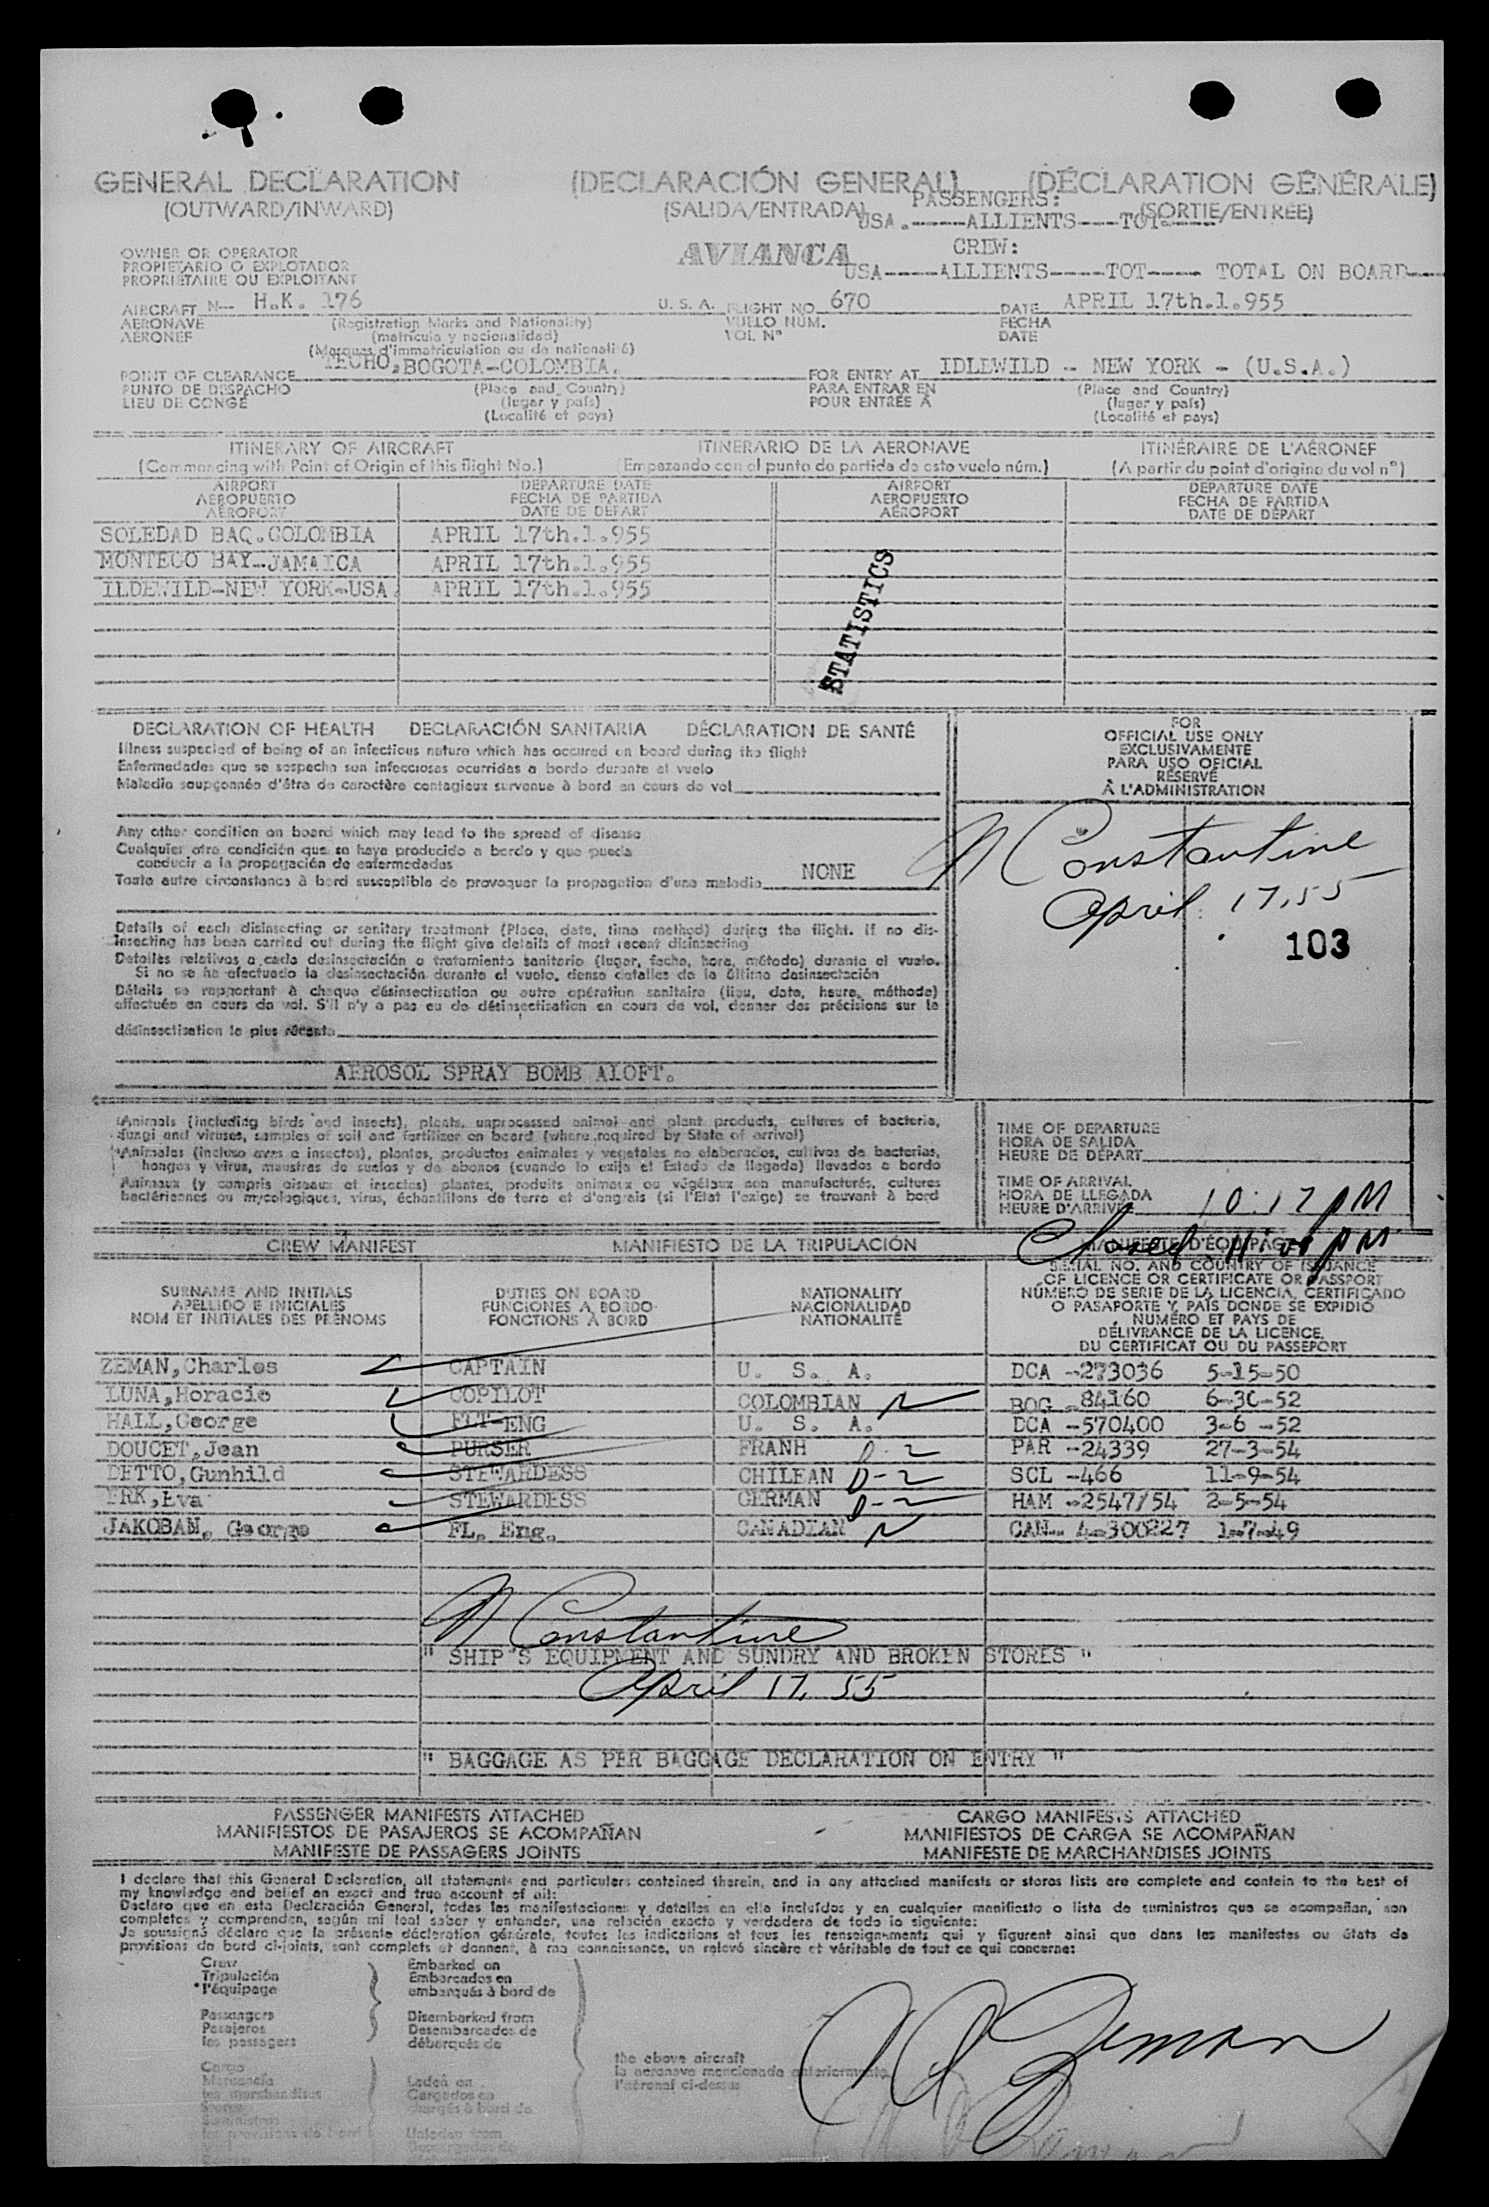 GENERAL DECLARATION (DECLARACIÓN GENERAL) (DÉCLARATION GÉNÉRALE)
(OUTWARD/INWARD) (SALIDA/ENTRADA) (SORTIE/ENTRÉE)
PASSENGERS:
USA.-----ALLIENTS----TOT.----
OWNER OR OPERATOR
PROPIETARIO O EXPLOTADOR
PROPRIÉTAIRE OU EXPLOITANT
AVIANCA
CREW:
USA-----ALLIENTS-----TOT----- TOTAL ON BOARD----
AIRCRAFT N-- H.K. 176 U. S. A. FLIGHT NO. 670 DATE APRIL 17th.1.955
AERONAVE (Registration Marks and Nationality) VUELO NÚM. FECHA
AÉRONEF (matrícula y nacionalidad) VOL Nº DATE
(Marques d'immatriculation ou de nationalité)
POINT OF CLEARANCE TECHO,BOGOTA-COLOMBIA. FOR ENTRY AT IDLEWILD -- NEW YORK - (U.S.A.)
PUNTO DE DESPACHO (Place and Country) PARA ENTRAR EN (Place and Country)
LIEU DE CONGÉ (lugar y país) POUR ENTRÉE À (lugar y país)
(Localité et pays) (Localité et pays)
ITINERARY OF AIRCRAFT ITINERARIO DE LA AERONAVE ITINÉRAIRE DE L'AÉRONEF
(Commencing with Point of Origin of this flight No.) (Empezando con el punto de partida de este vuelo núm.) (A partir du point d'origine du vol nº)
AIRPORT DEPARTURE DATE AIRPORT DEPARTURE DATE
AEROPUERTO FECHA DE PARTIDA AEROPUERTO FECHA DE PARTIDA
AÉROPORT DATE DE DÉPART AÉROPORT DATE DE DÉPART
SOLEDAD BAQ.COLOMBIA APRIL 17th.1.955
MONTEGO BAY-JAMAICA APRIL 17th.1.955
ILDEWILD-NEW YORK-USA. APRIL 17th.1.955
STATISTICS
DECLARATION OF HEALTH DECLARACIÓN SANITARIA DÉCLARATION DE SANTÉ
Illness suspected of being of an infectious nature which has occured on board during the flight
Enfermedades que se sospecha son infecciosas ocurridas a bordo durante el vuelo
Maladie soupçonnée d'être de caractère contagieux survenue à bord en cours de vol
Any other condition on board which may lead to the spread of disease
Cualquier otra condición que se haya producido a bordo y que pueda
conducir a la propagación de enfermedades
Toute autre circonstance à bord susceptible de provoquer la propagation d'une maladie NONE
Details of each disinsecting or sanitary treatment (Place, date, time method) during the flight. if no dis-
insecting has been carried out during the flight give details of most recent disinsecting
Detalles relativos a cada desinsectación o tratamiento sanitario (lugar, fecha, hora, método) durante el vuelo.
Si no se ha efectuado la desinsectación durante el vuelo, dense detalles de la última desinsectación
Détails se rapportant à chaque désinsectisation ou autre opération sanitaire (lieu, date, heure, méthode)
effectuée en cours de vol. S'il n'y a pas eu de désinsectisation en cours de vol, donner des précisions sur la
désinsectisation la plus récente
AEROSOL SPRAY BOMB ALOFT.
FOR
OFFICIAL USE ONLY
EXCLUSIVAMENTE
PARA USO OFICIAL
RÉSERVÉ
À L'ADMINISTRATION
N Constantine
April 17, 55
103
Animals (including birds and insects), plants, unprocessed animal and plant products, cultures of bacteria,
fungi and viruses, samples of soil and fertilizer on board (where required by State of arrival)
Animales (incluso aves e insectos), plantas, productos animales y vegetales no elaborados, cultivos de bacterias,
hongos y virus, muestras de suelos y de abonos (cuando lo exija el Estado de llegada) llevados a bordo
Animaux (y compris oiseaux et insectes) plantes, produits animaux ou végétaux non manufacturés, cultures
bactériennes ou mycologiques, virus, échantillons de terre et d'engrais (si l'État l'exige) se trouvant à bord
TIME OF DEPARTURE
HORA DE SALIDA
HEURE DE DÉPART
TIME OF ARRIVAL
HORA DE LLEGADA
HEURE D'ARRIVÉE 10:17 PM
Closed 11:00 PM
CREW MANIFEST MANIFIESTO DE LA TRIPULACIÓN MANIFESTE D'ÉQUIPAGE
SURNAME AND INITIALS
APELLIDO E INICIALES
NOM ET INITIALES DES PRÉNOMS
DUTIES ON BOARD
FUNCIONES A BORDO
FONCTIONS À BORD
NATIONALITY
NACIONALIDAD
NATIONALITÉ
SERIAL NO. AND COUNTRY OF ISSUANCE
OF LICENCE OR CERTIFICATE OR PASSPORT
NÚMERO DE SERIE DE LA LICENCIA, CERTIFICADO
O PASAPORTE Y PAÍS DONDE SE EXPIDIÓ
NUMÉRO ET PAYS DE
DÉLIVRANCE DE LA LICENCE,
DU CERTIFICAT OU DU PASSEPORT
ZEMAN,Charles CAPTAIN U. S. A. DCA -273036 5-15-50
LUNA,Horacio COPILOT COLOMBIAN N BOG -84160 6-30-52
HALL,George FLT-ENG U. S. A. DCA -570400 3-6 -52
DOUCET,Jean PURSER FRANH D-2 PAR -24339 27-3-54
DETTO,Gunhild STEWARDESS CHILEAN D-2 SCL -466 11-9-54
ERK,Eva STEWARDESS GERMAN D-2 HAM -2547/54 2-5-54
JAKOBAN, George FL. Eng. CANADIAN N CAN-- 4-300227 1-7-49
N Constantine
" SHIP'S EQUIPMENT AND SUNDRY AND BROKEN STORES "
April 17, 55
" BAGGAGE AS PER BAGGAGE DECLARATION ON ENTRY "
PASSENGER MANIFESTS ATTACHED CARGO MANIFESTS ATTACHED
MANIFIESTOS DE PASAJEROS SE ACOMPAÑAN MANIFIESTOS DE CARGA SE ACOMPAÑAN
MANIFESTE DE PASSAGERS JOINTS MANIFESTE DE MARCHANDISES JOINTS
I declare that this General Declaration, all statements and particulars contained therein, and in any attached manifests or stores lists are complete and contein to the best of
my knowledge and belief an exact and true account of all:
Declaro que en esta Declaración General, todas las manifestaciones y detalles en ella incluídos y en cualquier manifiesto o lista de suministros que se acompañan, son
completos y comprenden, según mi leal saber y entender, una relación exacta y verdadera de todo lo siguiente:
Je soussigné déclare que la présente déclaration générale, toutes les indications et tous les renseignements qui y figurent ainsi que dans les manifestes ou états de
provisions de bord ci-joints, sont complets et donnent, à ma connaissance, un relevé sincère et véritable de tout ce qui concerne:
Crew Embarked on
Tripulación Embarcados en
l'équipage embarqués à bord de
Passengers Disembarked from
Pasajeros Desembarcados de
les passagers débarqués de
the above aircraft
la aeronave mencionada anteriormente
l'aéronef ci-dessus
Cargo
Mercancía Laden on
les marchandises Cargados en
Stores chargés à bord de
Suministros
les provisions de bord Unladen from
Mail Descargados de
Zeman